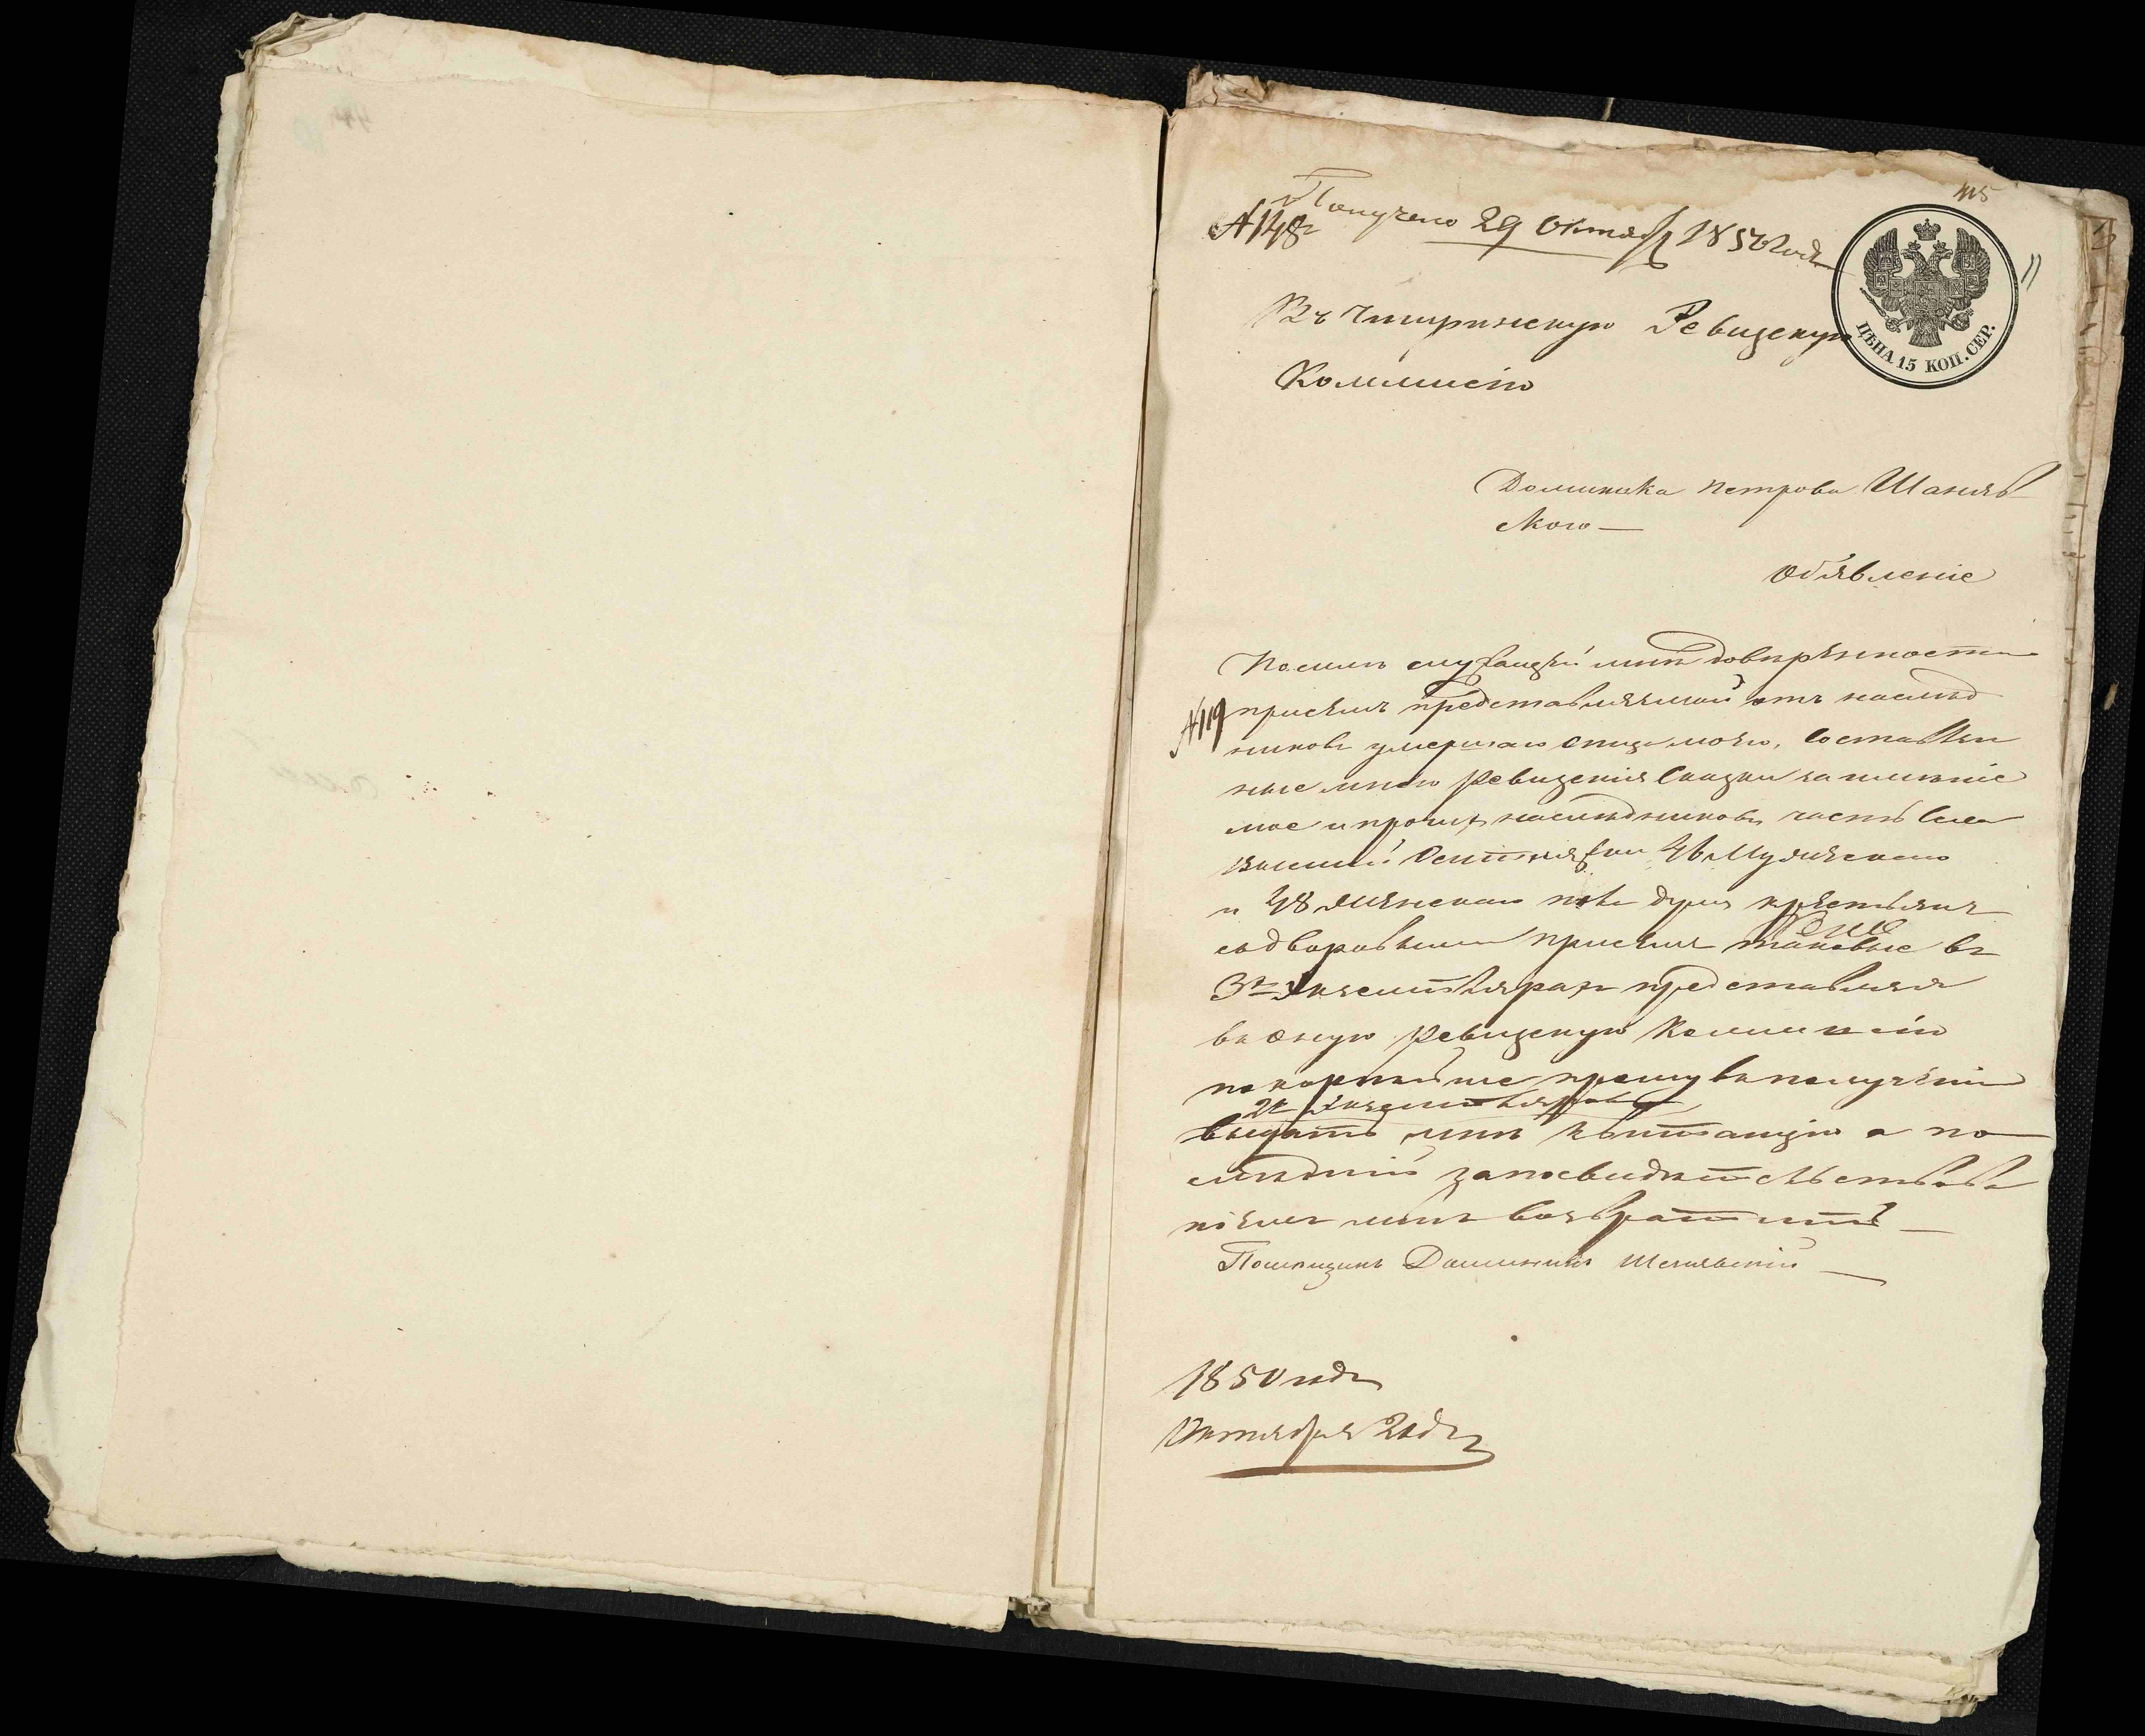 415
Получено 29 Октяб 1850 года
№ 148
ЦѢНА 15 КОП. СЕР.
Въ Чигиринскую Ревизскую
Коммисію
Доминика Петрова Шаняв
ского
Объявленіе
По силѣ служащей мнѣ довѣренности
№ 119
при семъ представляемой отъ наслѣд
никовъ умершаго отца моего, составлен
ные мною Ревизскія Сказки на имѣніе
мое и прочихъ наслѣдниковъ часть села
46 Мужескаго
и 48 Женскаго пола душъ крестьянъ
съ дворовыми при семъ таковые въ
3хъ Экземплярахъ представляя
въ оную Ревизскую Коммисію
покорнѣйше прошу въ полученіи
2хъ Экземпляровъ
выдать мнѣ квитанцію а по
слѣдній за посвидѣтельствова
ніемъ мнѣ возвратить
Помѣщикъ Доминикъ Шанявскій
1850 года
Октября 21 дн